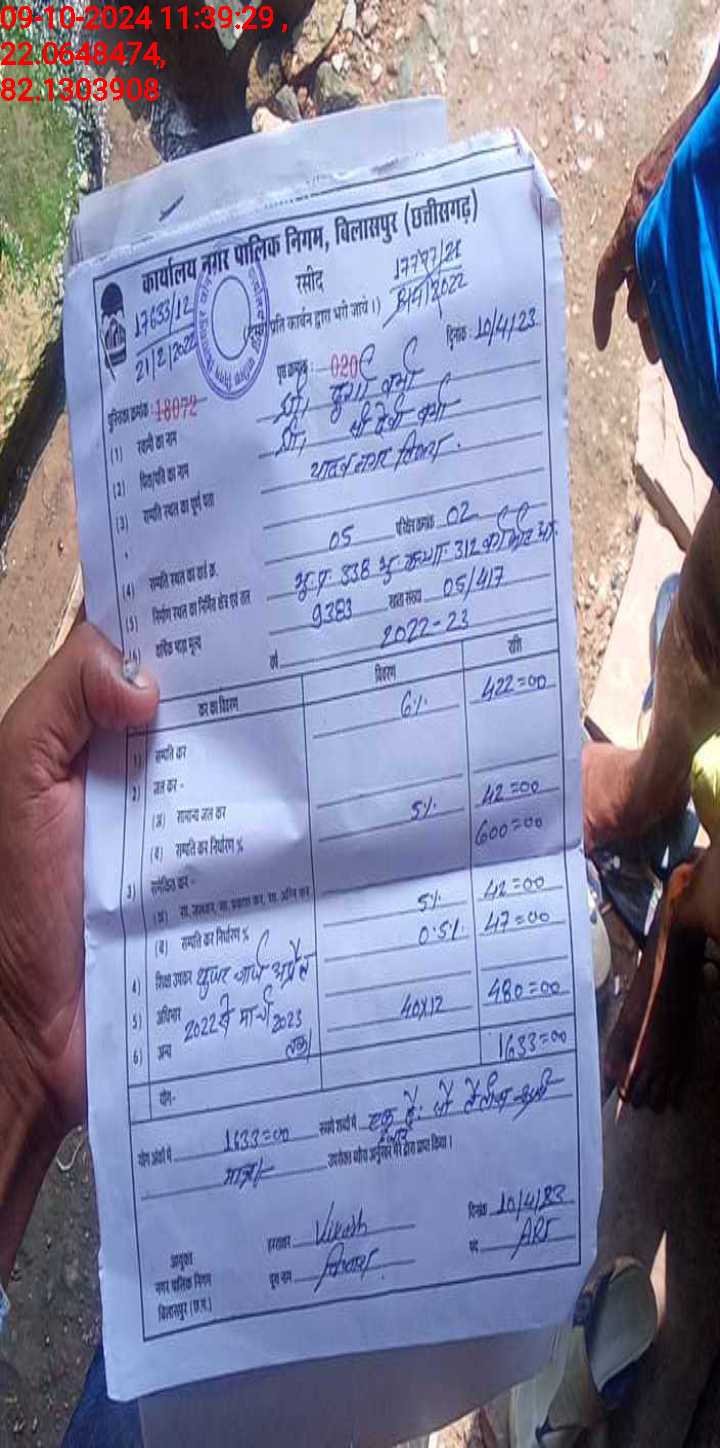 09-10-2024 11:39:29 ,
22.0648474,
82.1303908
कार्यालय नगर पालिक निगम, बिलासपुर (छत्तीसगढ़)
रसीद
17633/12
21/2/2022
17797/21
8/4/2022
प्रति कार्बन द्वारा भरी जाये।)
पुस्तिका क्रमांक: 18072 पृष्ठ क्रमांक: 020 दिनांक 10/4/23
(1) स्वामी का नाम श्री दुर्गा वर्मा
(2) पिता/पति का नाम वर्मा
(3) सम्पत्ति स्थल का पूर्ण पता यादव नगर
(4) सम्पत्ति स्थल का वार्ड क्र. 05 परिक्षेत्र क्रमांक 02
(5) निर्माण स्थल का निर्मित क्षेत्र एवं तल 338 312
(6) वार्षिक भाड़ा मूल्य 9383 खाता संख्या 05/417
वर्ष 2022-23
कर का विवरण विवरण राशि
1) सम्पत्ति कर 6% 422=00
2) जल कर -
(अ) सामान्य जल कर
(ब) सम्पत्ति कर निर्धारण % 5% 42=00
3) समेकित कर - 600=00
(अ) सा. सफाई कर, सा. प्रकाश कर, सा. अग्नि कर
(ब) सम्पत्ति कर निर्धारण % 5% 42=00
4) शिक्षा उपकर 0.5% 47=00
यूजर चार्ज अप्रैल
5) अधिभार
2022 से मार्च 2023
6) अन्य तक 40x12 480=00
योग- 1633=00
योग अंकों में 1633=00 रूपये शब्दों में एक हजार छः सौ तैंतीस रूपये
मात्र/- उपरोक्त योग अनुसार मेरे द्वारा प्राप्त किया।
आयुक्त
नगर पालिक निगम
बिलासपुर (छ.ग.)
हस्ताक्षर Vikash दिनांक 10/4/23
पूरा नाम पद ARI